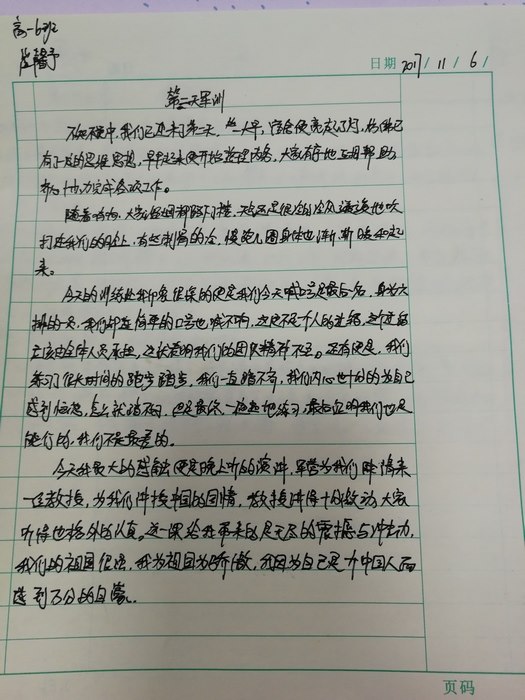 高一6班
馨予
日期 2017/11/6/
第三天军训
不知不觉中,我们已迎来了第三天,一大早,宿舍便亮起了灯,仿佛已
有了的思想,早早起来便开始整理内务,大家有序地互相帮助
齐心协力完成各项工作。
随着哨响,大家,天还是很冷的冷风凄凄地吹
打在我们的身上,有些刺骨的冷,慢跑几圈身体也渐渐暖和起
来。
今天的训练让我印象很深的便是我们今天喊口号是最后一名,身为六
排的一员,我们却连简单的口号也喊不响,这不是个人的
应该由全体人员承担,这说明我们的团队精神不足。还有便是,我们
练习了很长时间的跑步踏步,我们一直踏不齐,我们内心也十分的为自己
感到,怎么就踏不齐,但是最后一遍遍地练习,最后证明我们也是
能行的,我们不是最差的。
今天我最大的感触便是晚上听的演讲,军营为我们請来
一位教授,为我们讲授中国的国情,教授讲得十分激动,大家
听得也格外的认真,这一课给我带来的是无尽的震撼与冲动,
我们的祖国很强,我为祖国为骄傲,我因为自己是个中国人而
感到万分的自豪。
页码